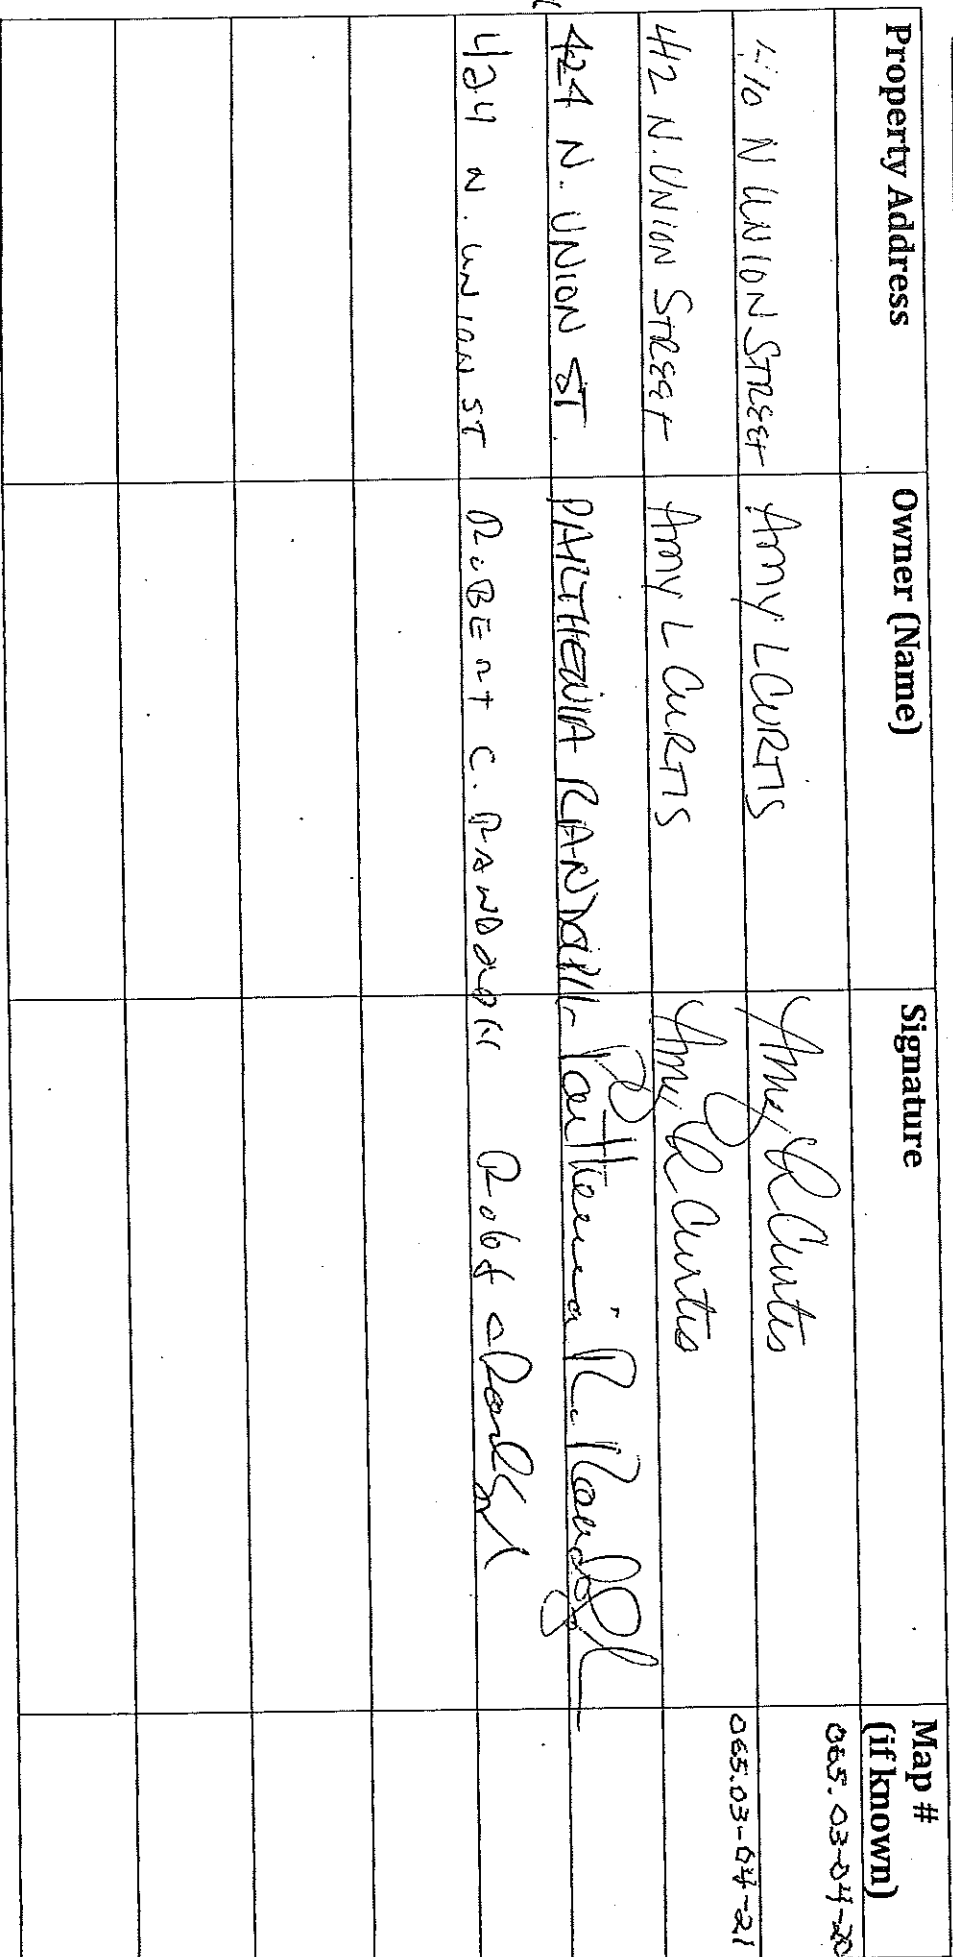 Property Address Owner (Name) Signature Map #
(if known)
410 N UNION STREET Amy L CURTIS Amy L Curtis 065.03-04-20
412 N. UNION STREET Amy L CURTIS Amy L Curtis 065.03-04-21
424 N. UNION ST. PARTHENIA RANDOLPH Parthenia R. Randolph
424 N. UNION ST ROBERT C. RANDOLPH